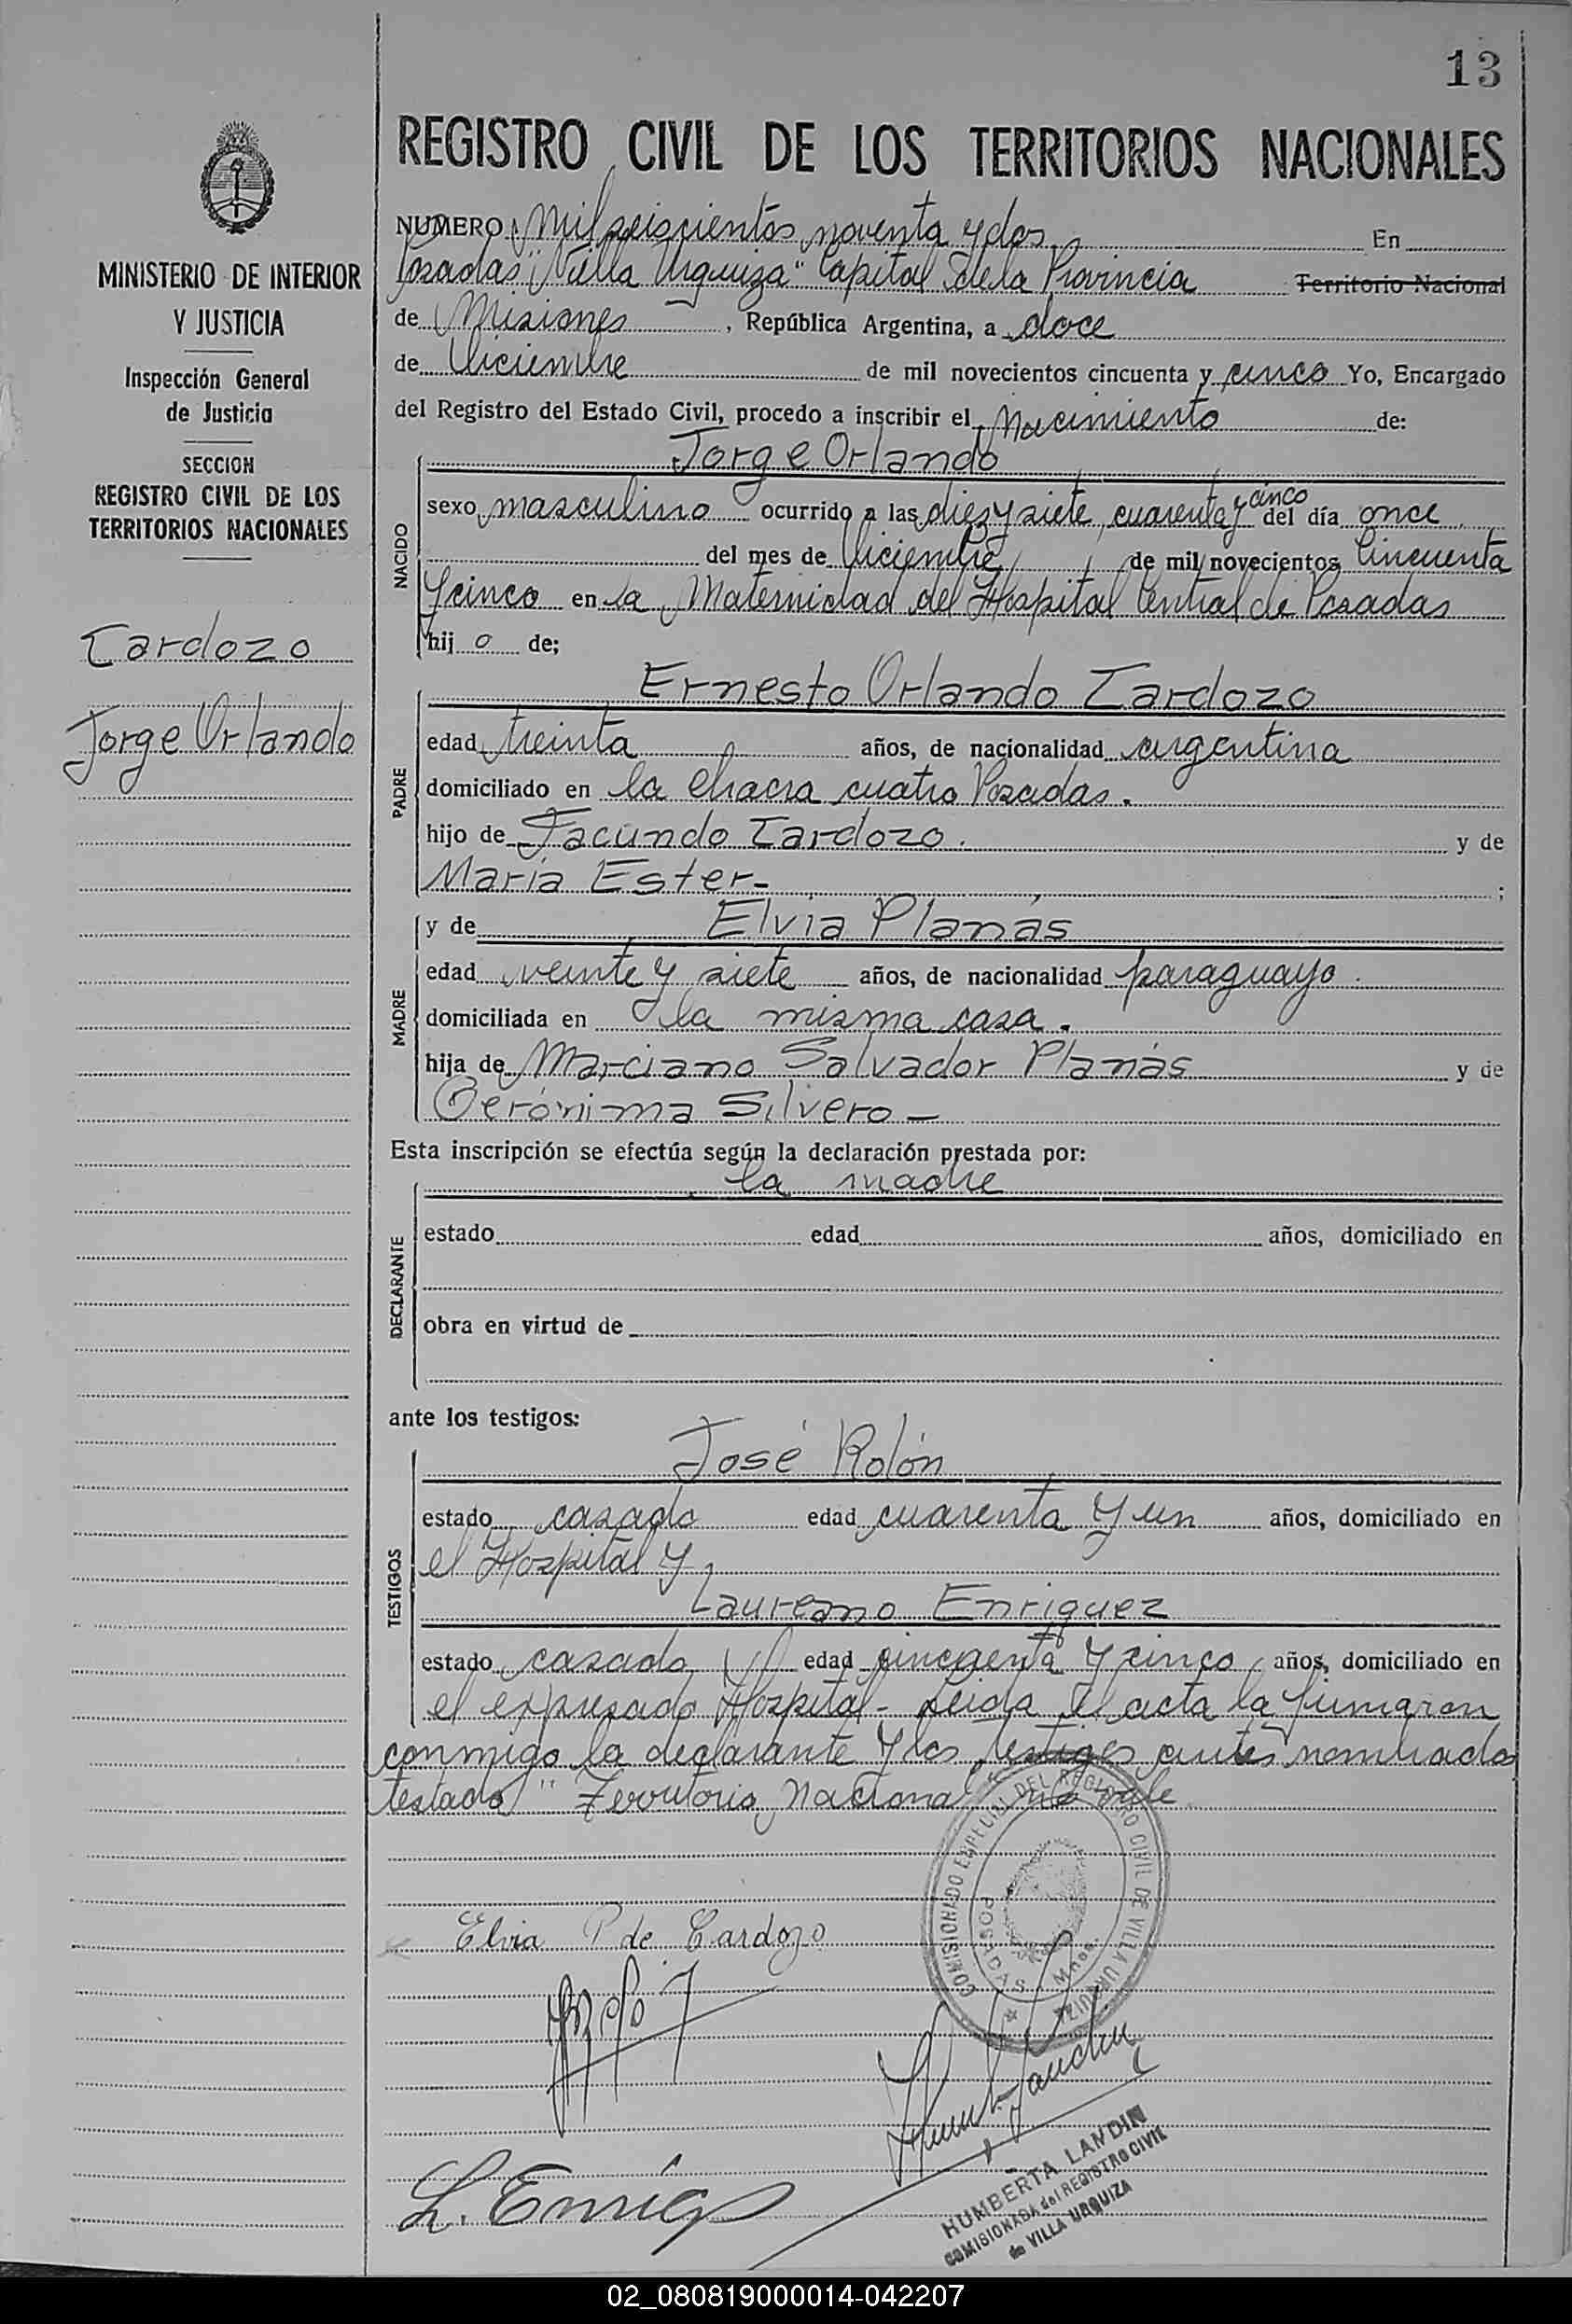 13
REGISTRO CIVIL DE LOS TERRITORIOS NACIONALES
MINISTERIO DE INTERIOR
Y JUSTICIA
Inspección General
de Justicia
SECCION
REGISTRO CIVIL DE LOS
TERRITORIOS NACIONALES
Cardozo
Jorge Orlando
NUMERO Mil seiscientos noventa y dos En
Posadas "Villa Urquiza" Capital de la Provincia Territorio Nacional
de Misiones, República Argentina, a doce
de Diciembre de mil novecientos cincuenta y cinco Yo, Encargado
del Registro del Estado Civil, procedo a inscribir el Nacimiento de:
Jorge Orlando
NACIDO
sexo masculino ocurrido a las diez y siete, cuarenta y cinco del día once
del mes de Diciembre de mil novecientos Cincuenta
y cinco en la Maternidad del Hospital Central de Posadas
hij o de;
PADRE
Ernesto Orlando Cardozo
edad treinta años, de nacionalidad argentina
domiciliado en la chacra cuatro Posadas.
hijo de Facundo Cardozo. y de
María Ester- ;
MADRE
y de Elvia Planás
edad veinte y siete años, de nacionalidad paraguayo.
domiciliada en la misma casa.
hija de Marciano Salvador Planás y de
Gerónima Silvero-
Esta inscripción se efectúa según la declaración prestada por:
DECLARANTE
la madre
estado edad años, domiciliado en
obra en virtud de
ante los testigos:
TESTIGOS
José Rolón
estado casado edad cuarenta y un años, domiciliado en
el Hospital y
Laureano Enriquez
estado casado edad cincuenta y cinco años, domiciliado en
el expresado Hospital- Leida el acta la firmaron
conmigo la declarante y los testigos antes nombrados
testado "Territorio Nacional" no vale
COMISIONADO ESPECIAL DEL REGISTRO CIVIL DE VILLA URQUIZA
POSADAS Mnes.
Elvia P. de Cardozo
L. Enriq
HUMBERTA LANDIN
COMISIONADA del REGISTRO CIVIL
de VILLA URQUIZA
02_080819000014-042207